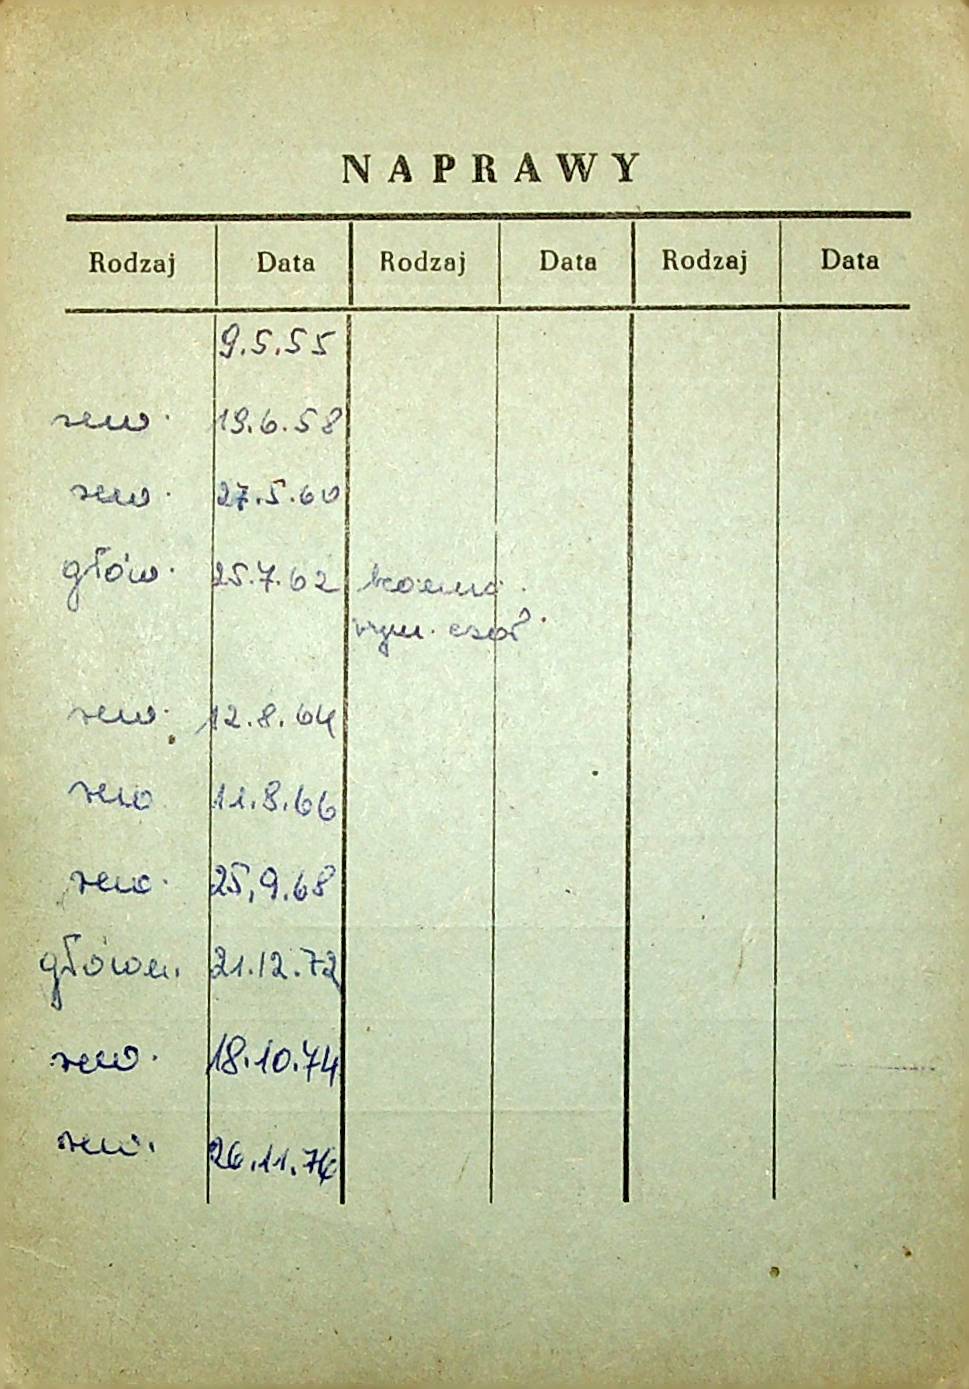 NAPRAWY
Rodzaj Data Rodzaj Data Rodzaj Data
9.5.55
rew. 19.6.58
rew. 27.5.60
głów. 25.7.62
wym. czoł.
rew. 12.8.64
rew 11.8.66
rew. 25,9.68
główn. 21.12.72
rew. 18.10.74
rew. 26.11.76